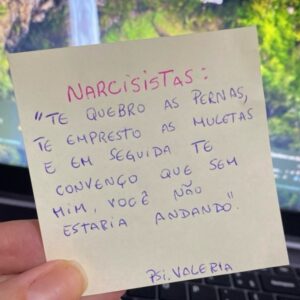 NARCISISTAS:
"TE QUEBRO AS PERNAS,
TE EMPRESTO AS MULETAS
E EM SEGUIDA TE
CONVENÇO QUE SEM
MIM, VOCÊ NÃO
ESTARIA ANDANDO".
PSI. VALERIA